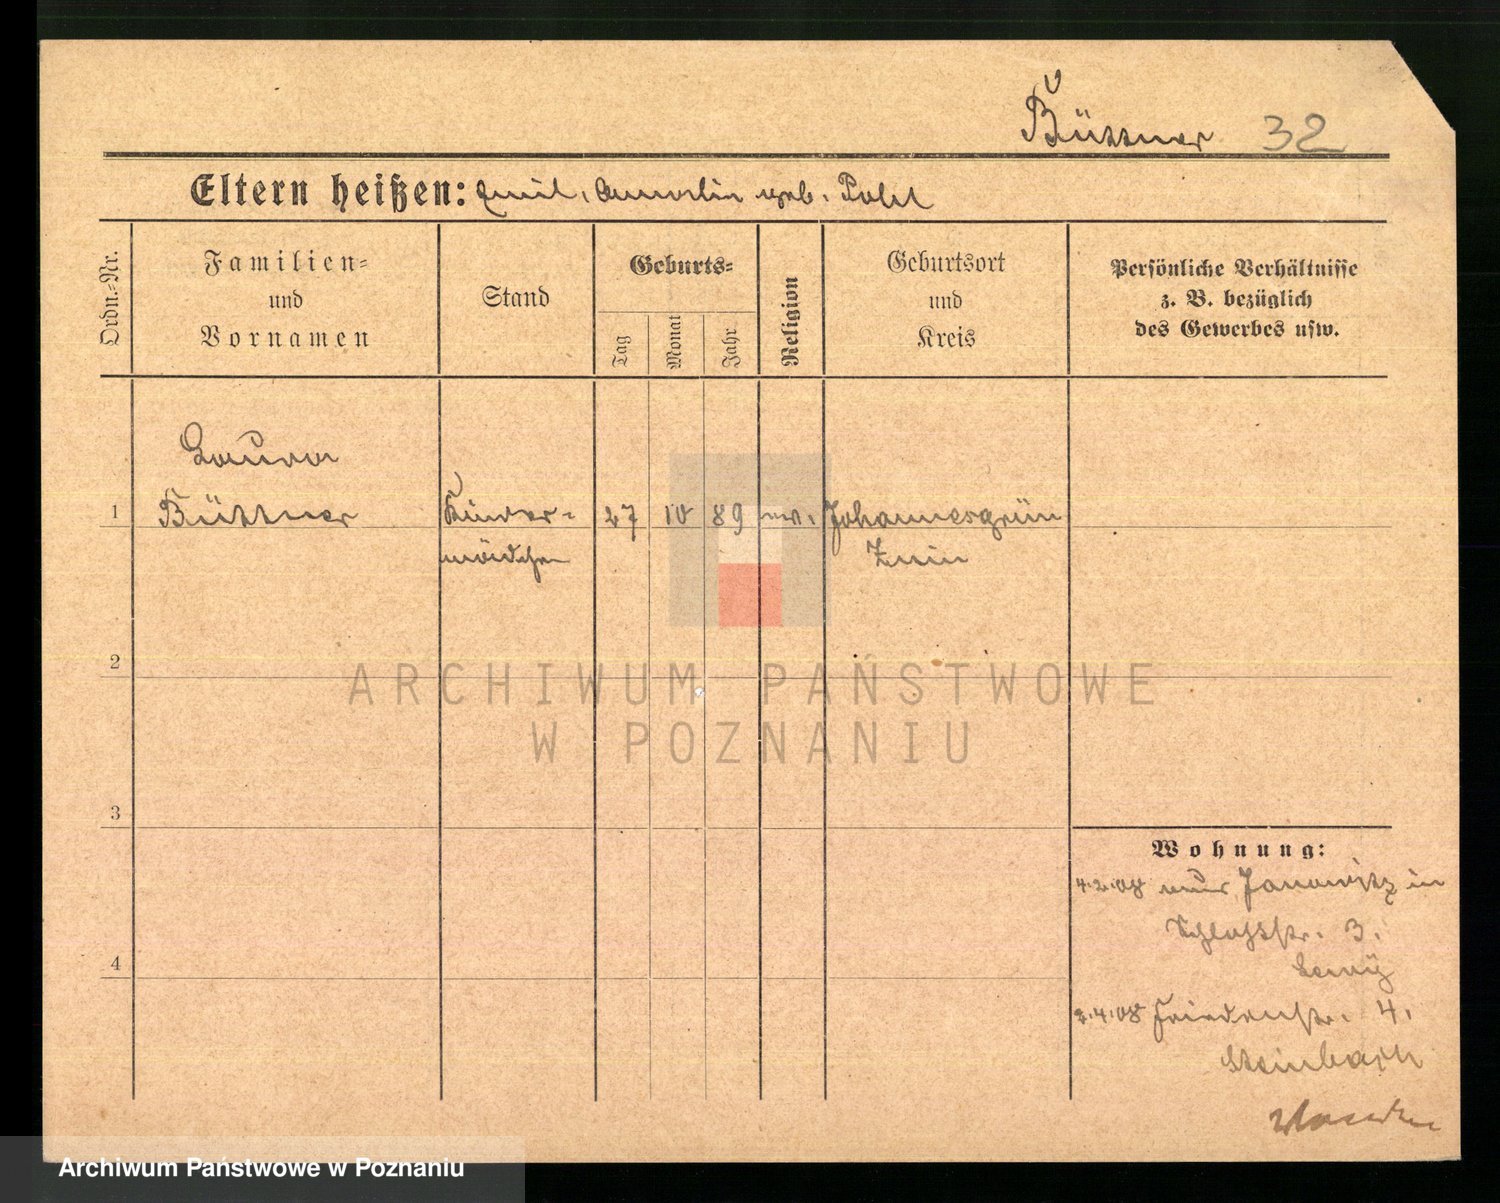 Büttner 32
Eltern heißen: Emil, Amalie geb. Pohl
Ordn.-Nr.
Familien-
und
Vornamen
Stand
Geburts-
Tag
Monat
Jahr
Religion
Geburtsort
und
Kreis
Persönliche Verhältnisse
z. B. bezüglich
des Gewerbes usw.
Laura
1 Büttner Kinder- 27 10 89 ev. Johannesgrün
mädchen Znin
2
ARCHIWUM PAŃSTWOWE
W POZNANIU
3
Wohnung:
4.2.08 aus Janowitz in
Schloßstr. 3.
4
2.4.08 Friedenstr. 4.
Steinbach
Archiwum Państwowe w Poznaniu